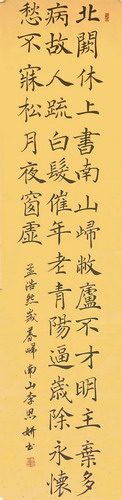 北闕休上書南山歸敝廬不才明主棄多
病故人疏白髮催年老青陽逼歲除永懷
愁不寐松月夜窗虛
孟浩然歲暮歸南山李思妍書